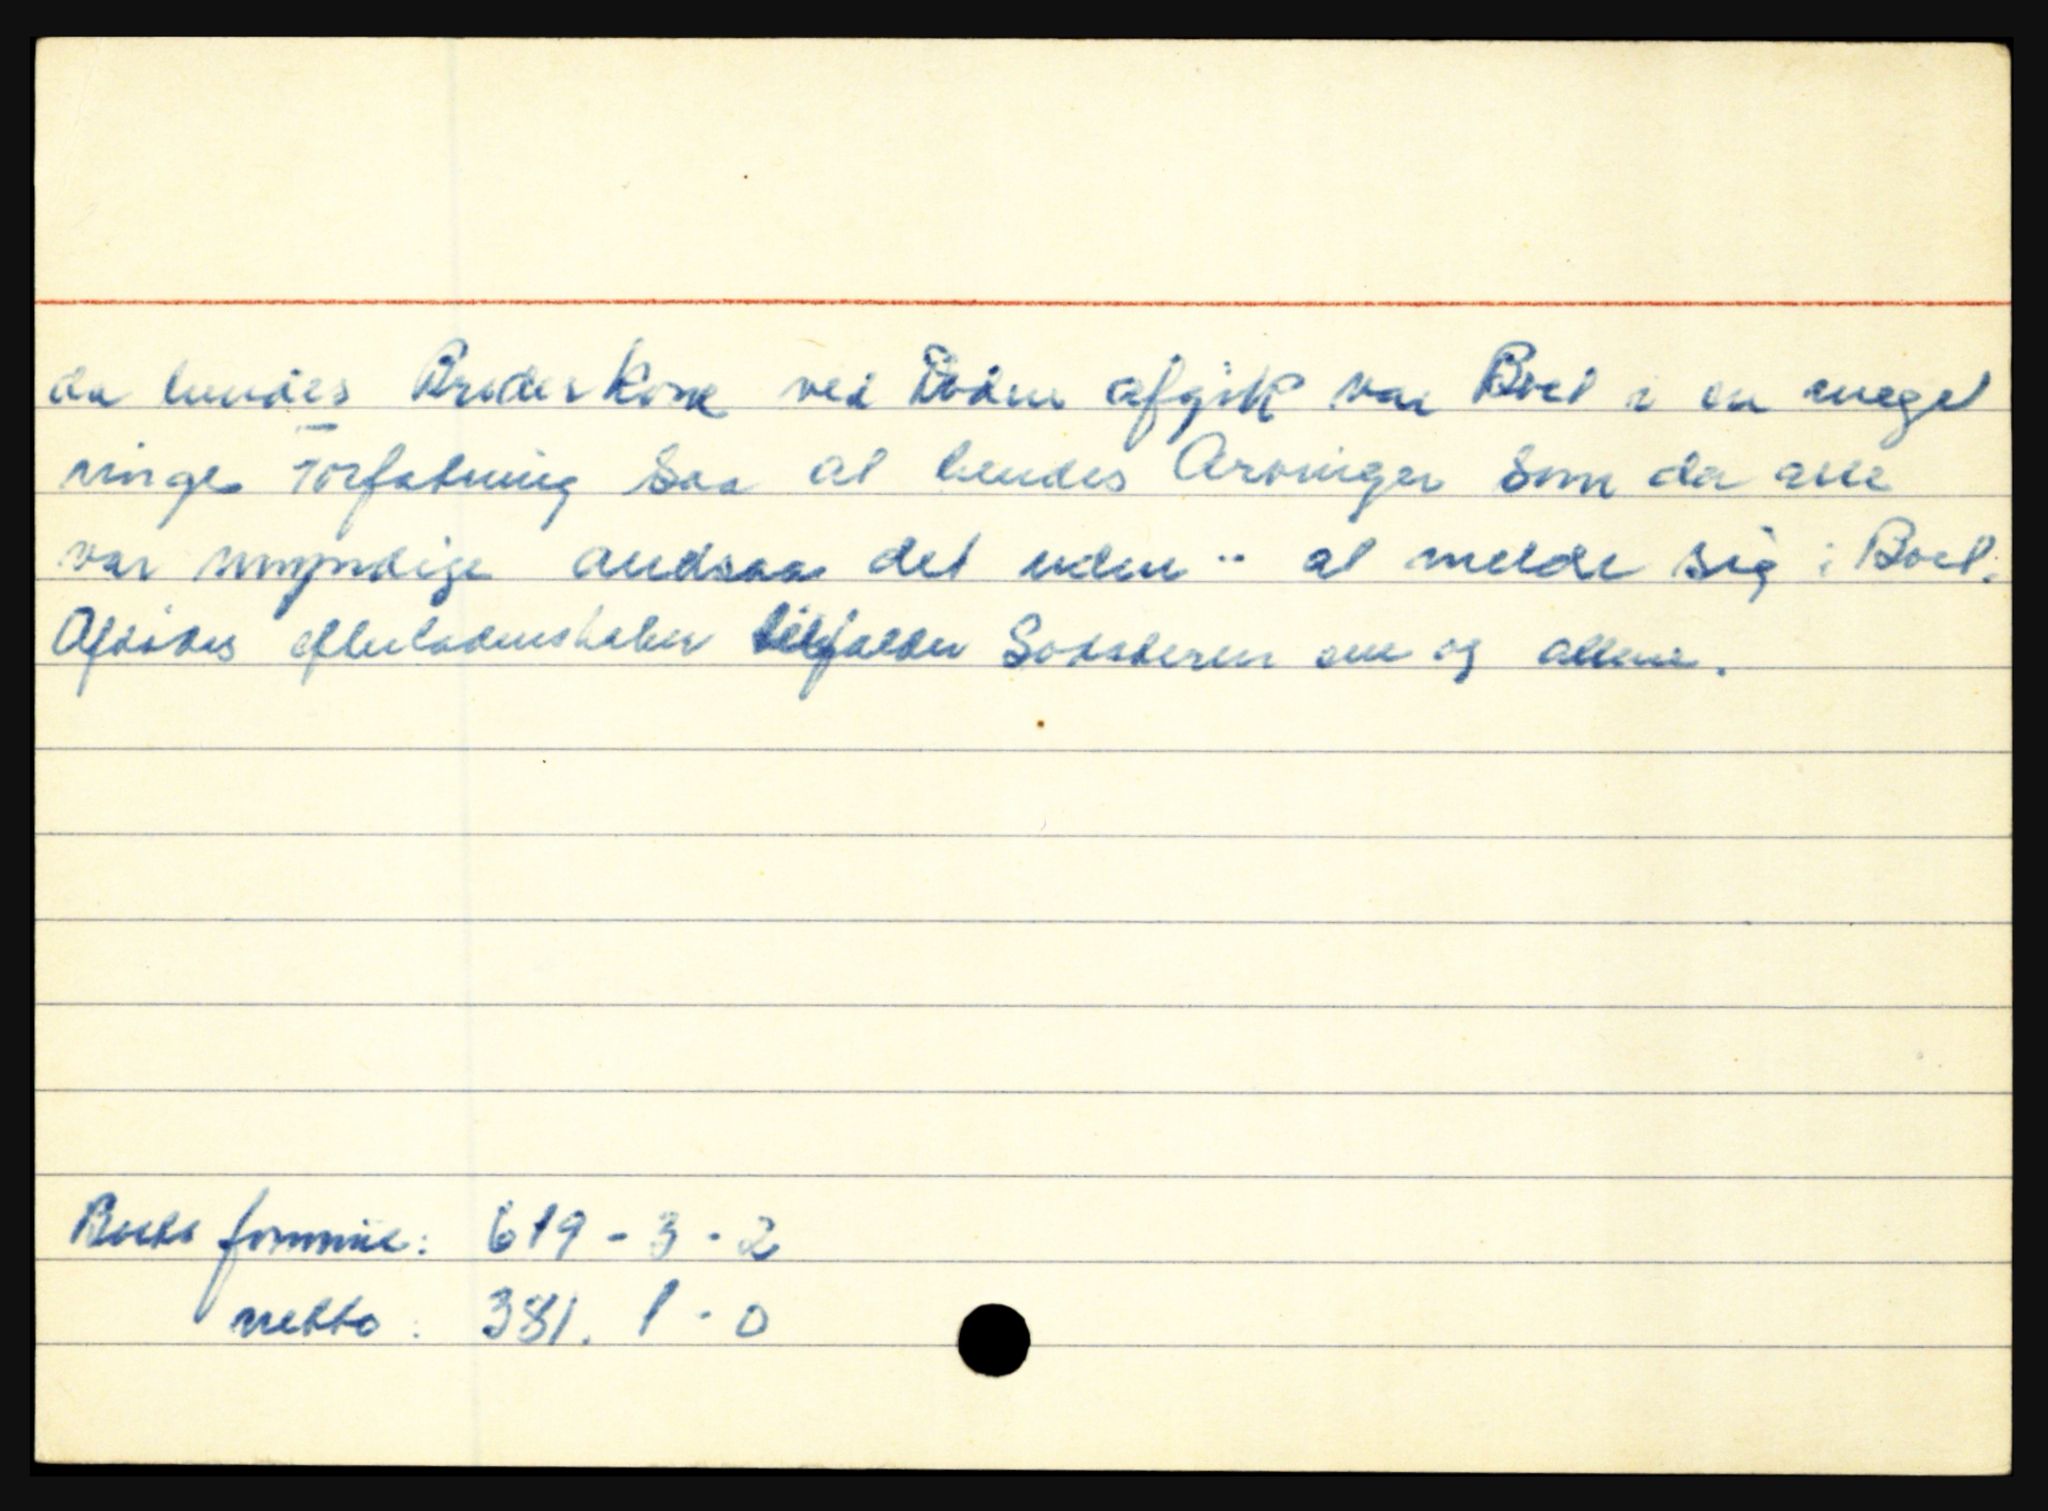 da hendes Broder Kone ved Døden afgik var Boet i en meget
ringe Forfatning saa at hendes Arvinger som da alle
var umyndige ansaa det uden -- at melde sig i Boet.
Afdødes efterladenskaber tilfalder Søsteren ene og allene.
Boets formue: 619 - 3 - 2
netto: 381. 1 - 0